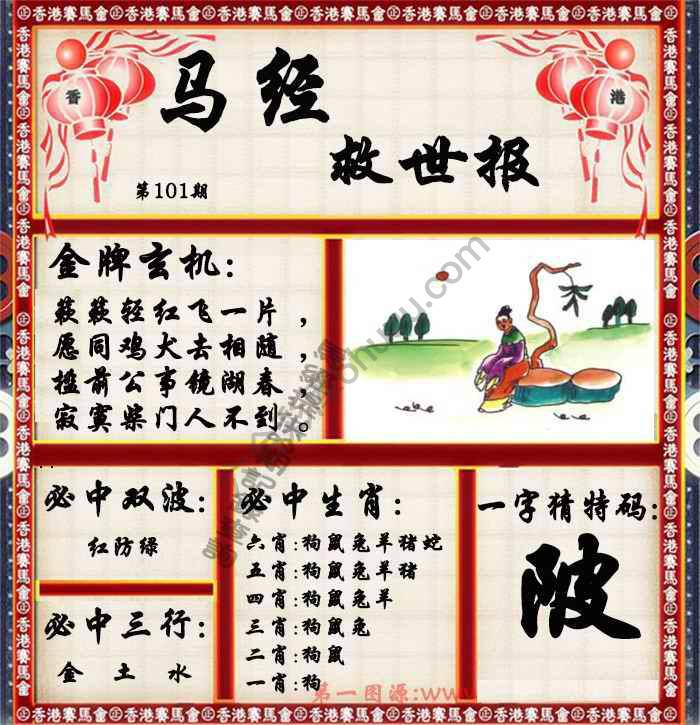 香港賽馬會
香 港
马经
救世报
第101期
金牌玄机:
簌簌轻红飞一片，
愿同鸡犬去相随，
槛前公事镜湖春，
寂寞柴门人不到。
必中双波:
红防绿
必中三行:
金 土 水
必中生肖:
六肖:狗鼠兔羊猪蛇
五肖:狗鼠兔羊猪
四肖:狗鼠兔羊
三肖:狗鼠兔
二肖:狗鼠
一肖:狗
一字猜特码:
陂
第一图源:www